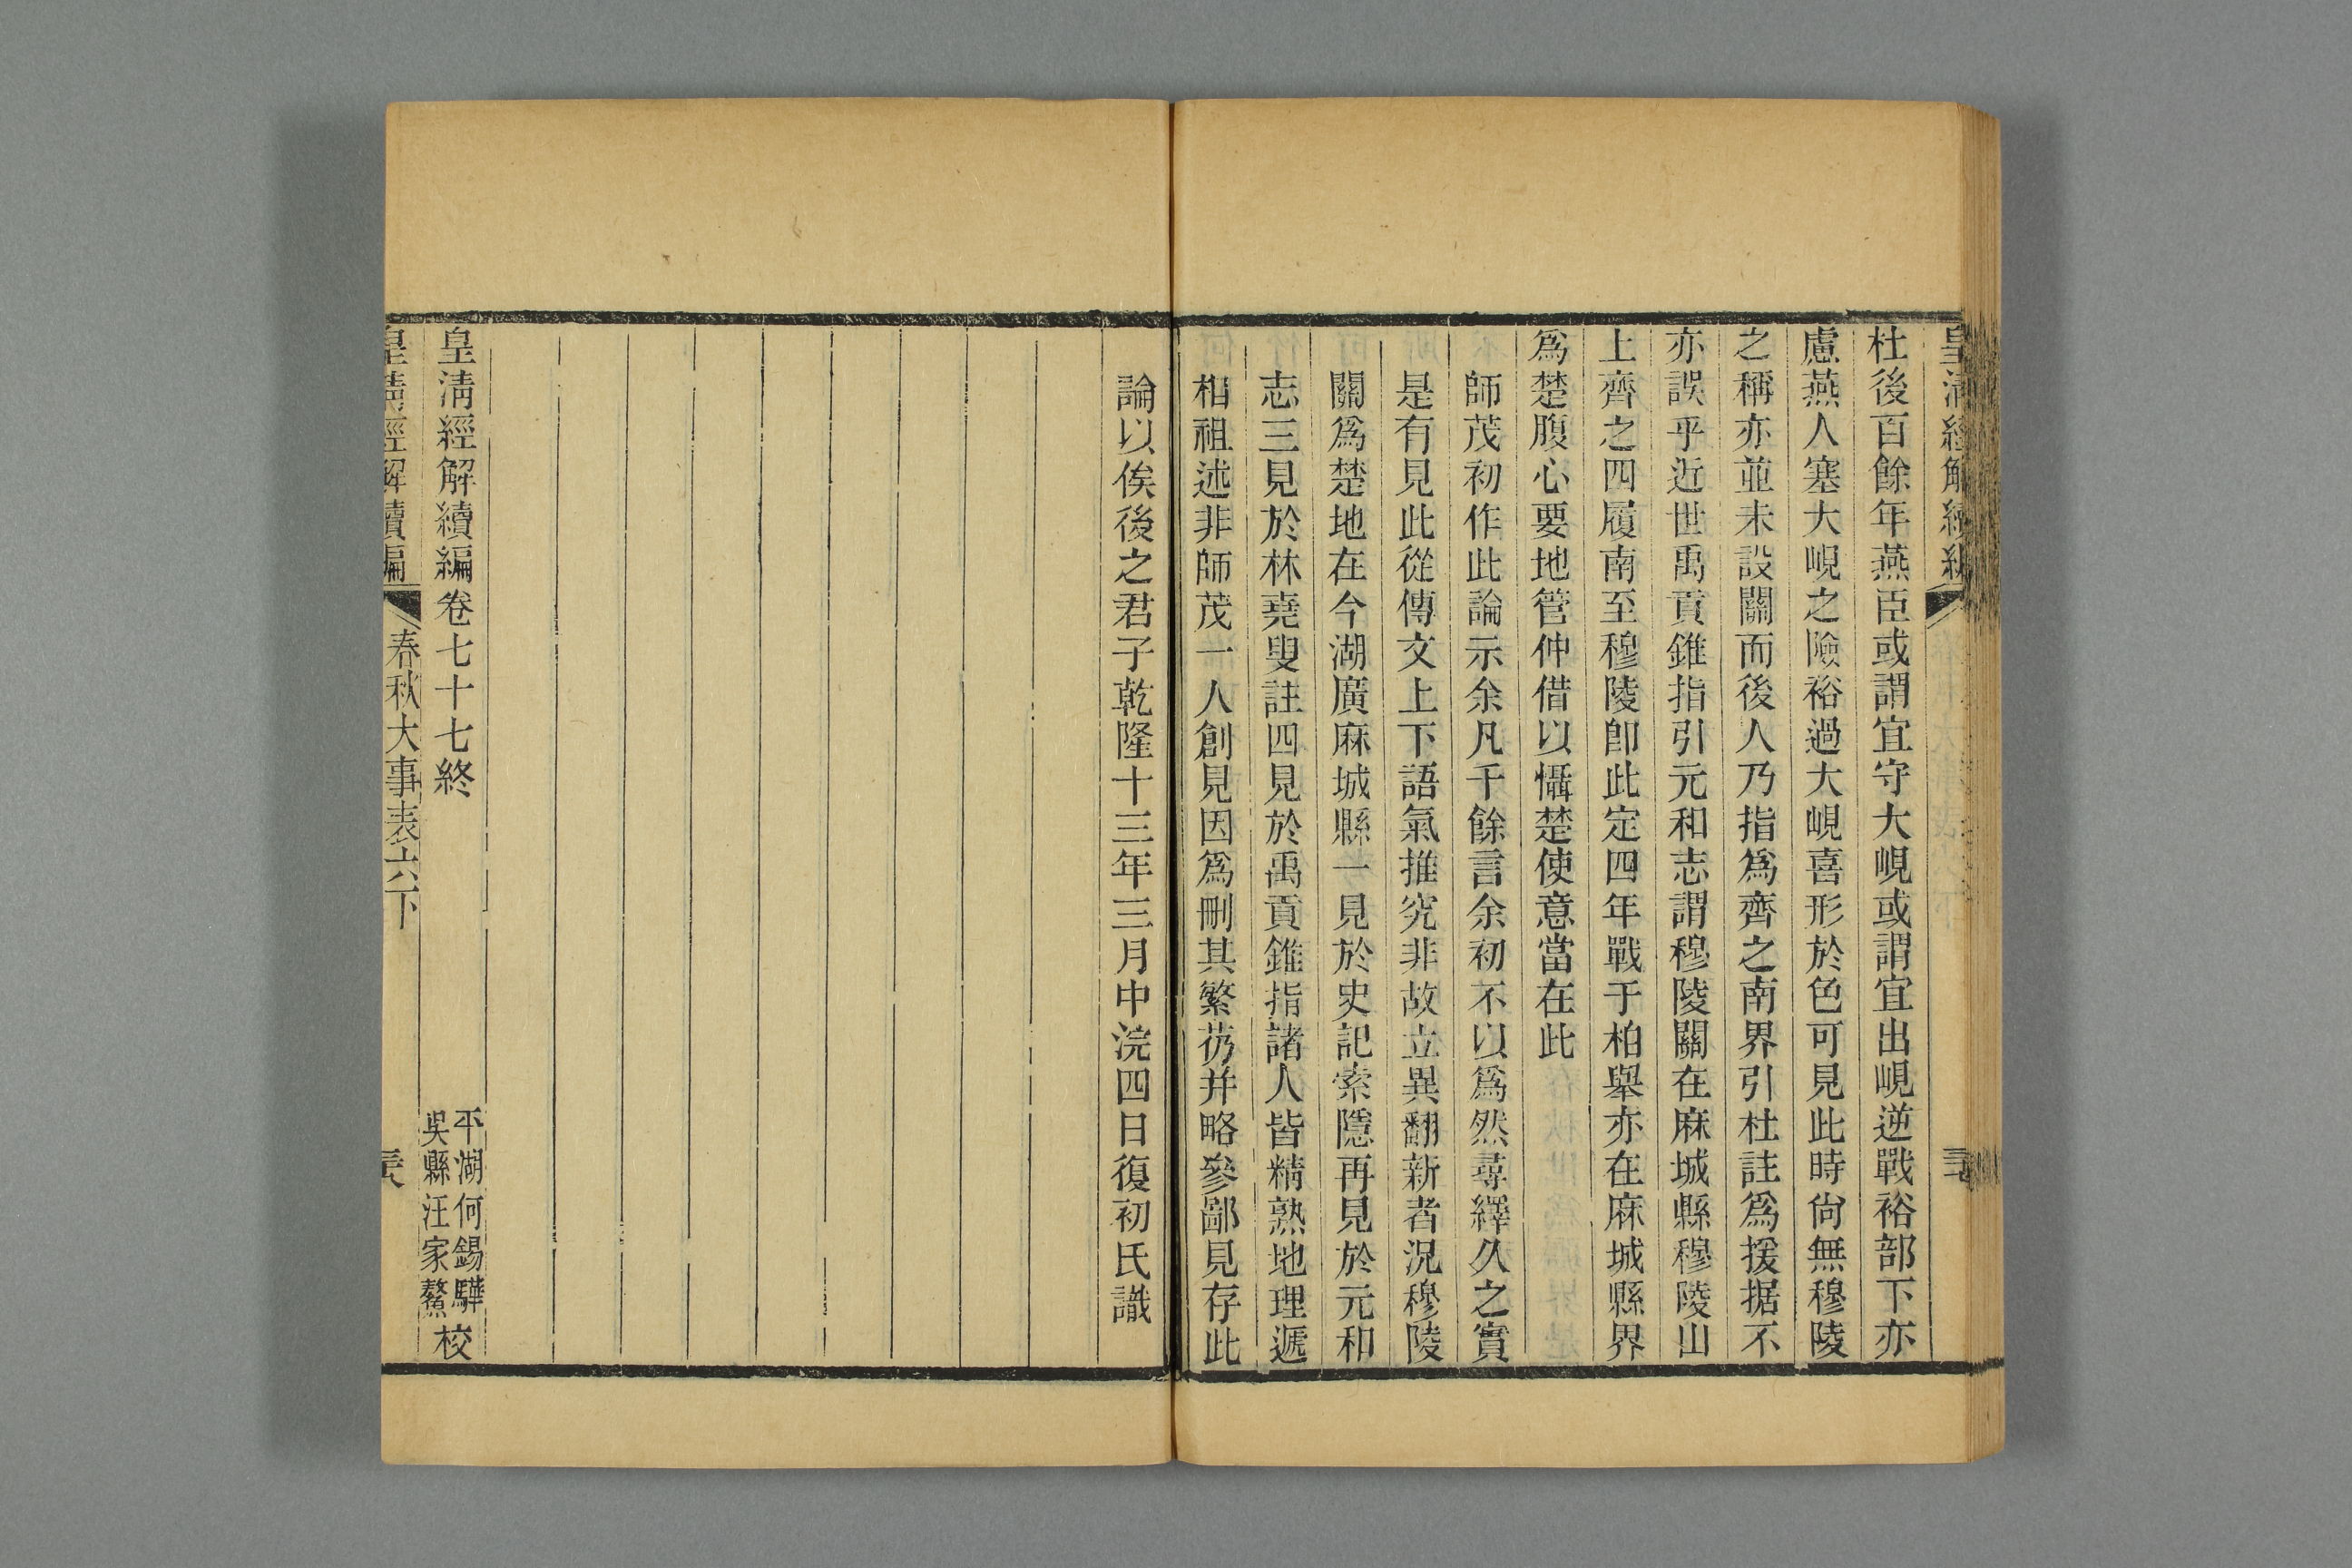 皇清經解續編
杜後百餘年燕臣或謂宜守大峴或謂宜出峴逆戰裕部下亦
慮燕人塞大峴之險裕過大峴喜形於色可見此時尙無穆陵
之稱亦並未設關而後人乃指爲齊之南界引杜註爲援据不
亦誤乎近世禹貢錐指引元和志謂穆陵關在麻城縣穆陵山
上齊之四履南至穆陵卽此定四年戰于柏舉亦在麻城縣界
爲楚腹心要地管仲借以懾楚使意當在此
師茂初作此論示余凡千餘言余初不以爲然尋繹久之實
是有見此從傳文上下語氣推究非故立異翻新者況穆陵
關爲楚地在今湖廣麻城縣一見於史記索隱再見於元和
志三見於林堯叟註四見於禹貢錐指諸人皆精熟地理遞
相祖述非師茂一人創見因爲刪其繁芿并略參鄙見存此
論以俟後之君子乾隆十三年三月中浣四日復初氏識
皇清經解續編卷七十七終
平湖何錫驊
吳縣汪家鰲
校
皇清經解續編
春秋大事表六下